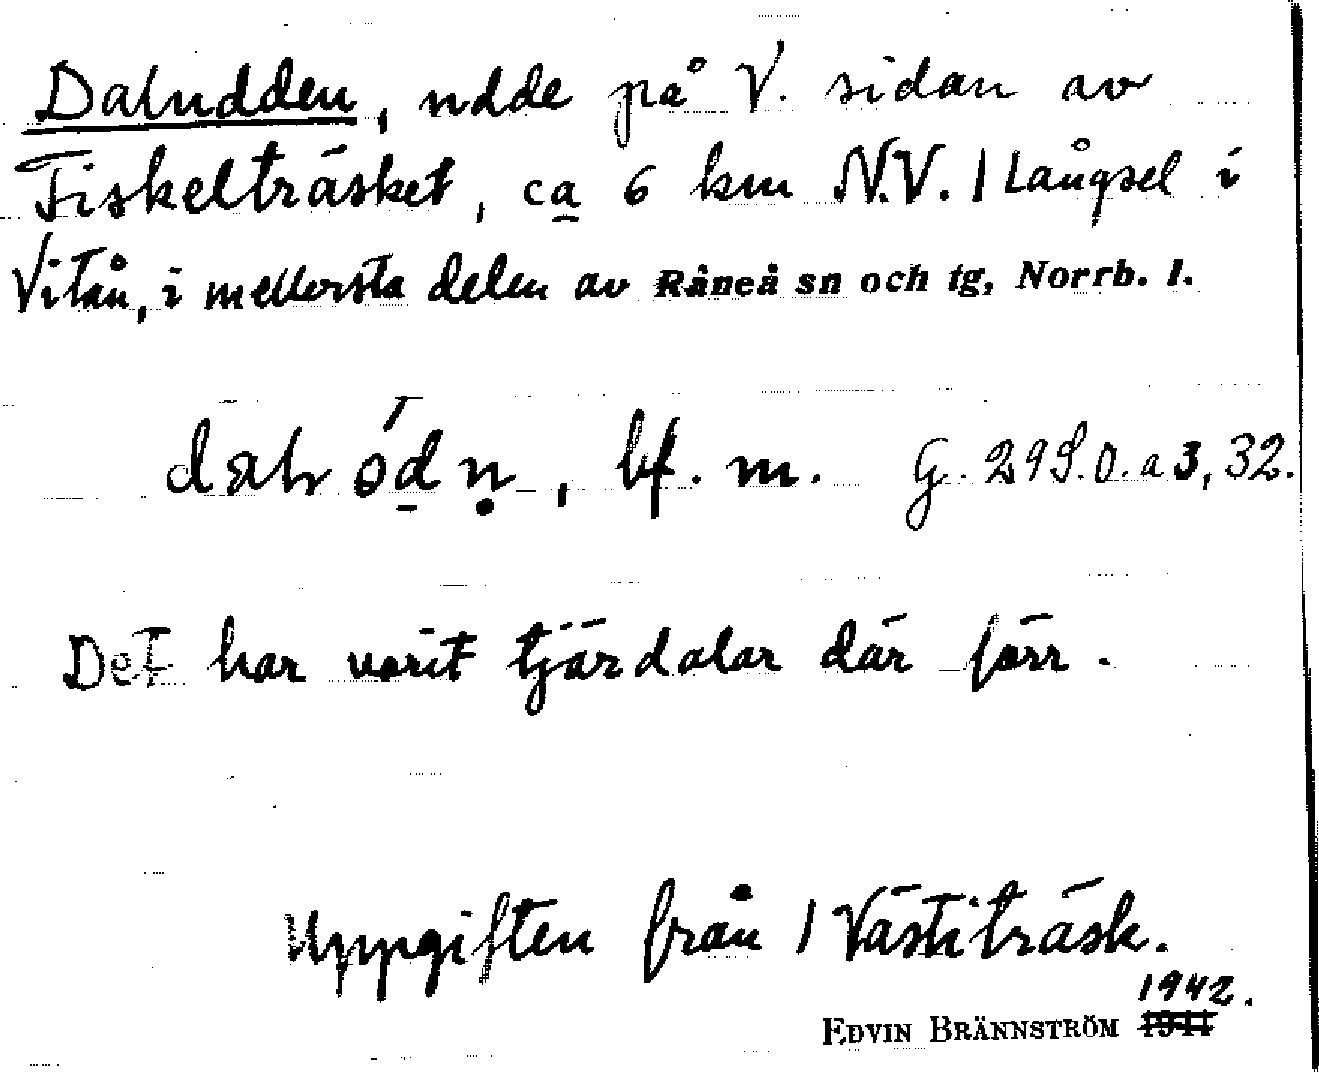 Daludden, udde på V. sidan av
Fiskelträsket, ca 6 km N.V. / Långsel i
Vitån, i mellersta delen av Råneå sn och tg, Norrb. l.
bf. m. G. 29S.O. a 3, 32.
Det har varit tjärdalar där förr.
Uppgiften från / Västiträsk.
1942.
EDVIN BRÄNNSTRÖM 1941